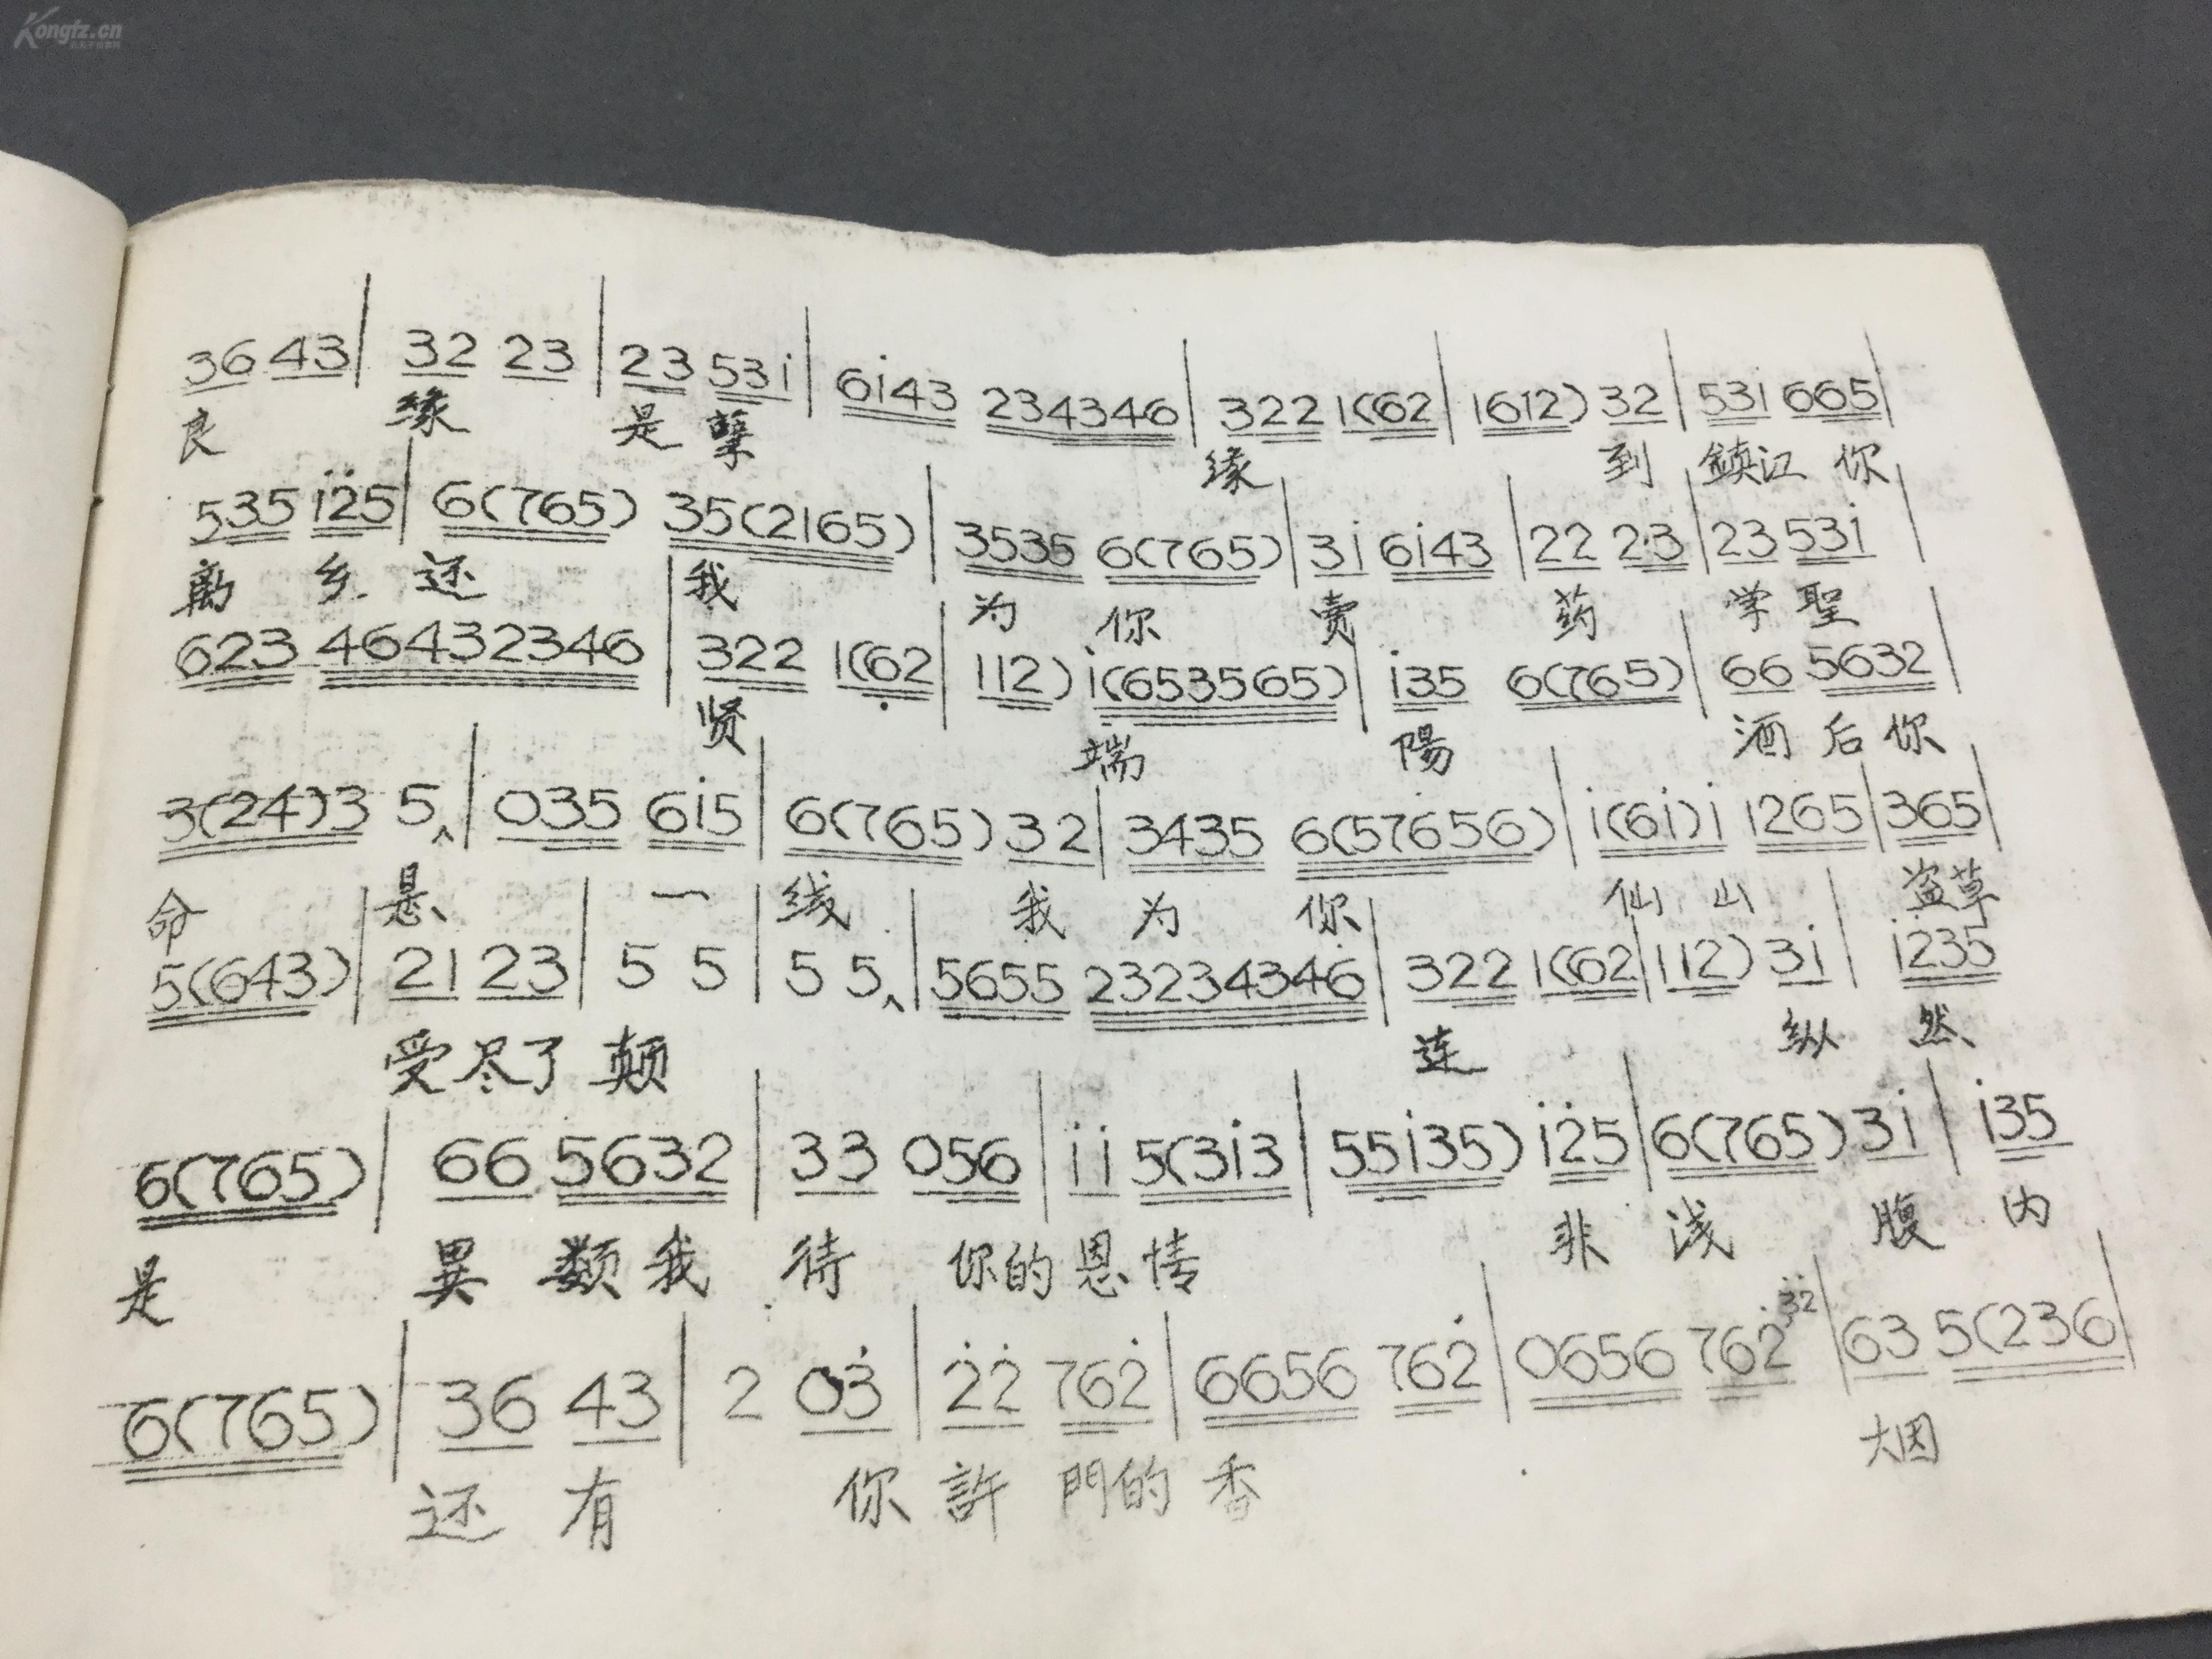 Kongfz.cn
36 43 | 32 23 | 23 53i | 6i43 234346 | 322 1(62 | 1612) 32 | 531 665 |
良 缘 是 孽 缘 到 鎮江 你
535 i̇2̇5 | 6(765) 35(2165) | 3535 6(765) | 3i 6i43 | 22 2·3 | 23 53i |
离 乡 还 我 为 你 卖 药 学 聖
623 46432346 | 322 1(6̣2 | 112) i(653565) | i35 6(765) | 66 5632 |
贤 端 陽 酒 后 你
3(24)3 5 | 035 6i5 | 6(765) 32 | 3435 6(57656) | i(6i)i 1265 | 365
命 悬 一 线 我 为 你 仙 山 盗草
5(643) | 21 23 | 5 5 | 5 5 | 5655 23234346 | 322 1(62 | 112) 3i | i235
受 尽 了 颠 连 纵 然
6(765) | 66 5632 | 33 056 | i i 5(3i3 | 55i35) i2̇5 | 6(765) 3i | i35
是 異 类 我 待 你的 恩 情 非 浅 腹 内
6(765) | 36 43 | 2 03̇ | 2̇2̇ 762̇ | 6656 762̇ | 0656 762̇ 3̇2̇ | 63 5(236
还 有 你 許 門的 香 烟